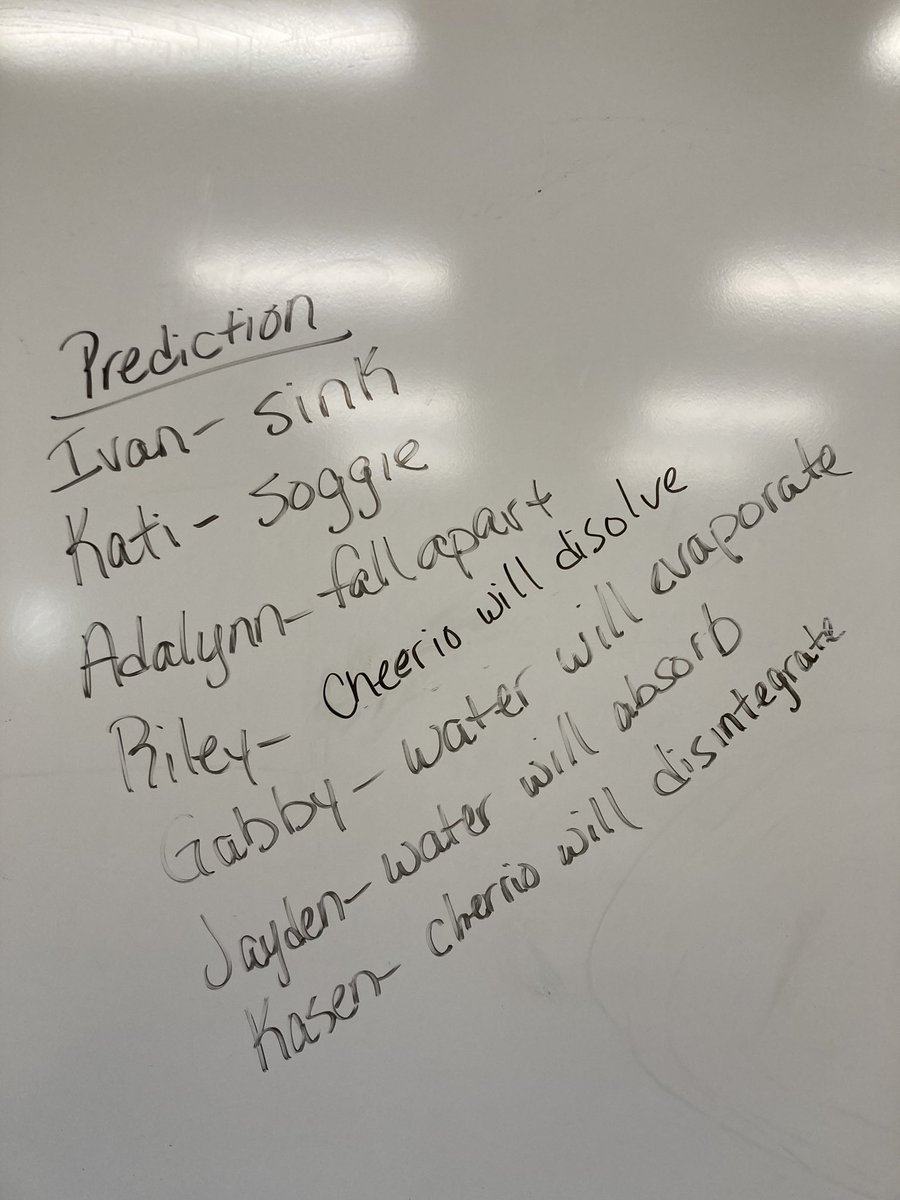 Prediction
Ivan- sink
Kati- soggie
Adalynn- fall apart
Riley- Cheerio will disolve
Gabby- water will evaporate
Jayden- water will absorb
Kasen- cherrio will disintegrate